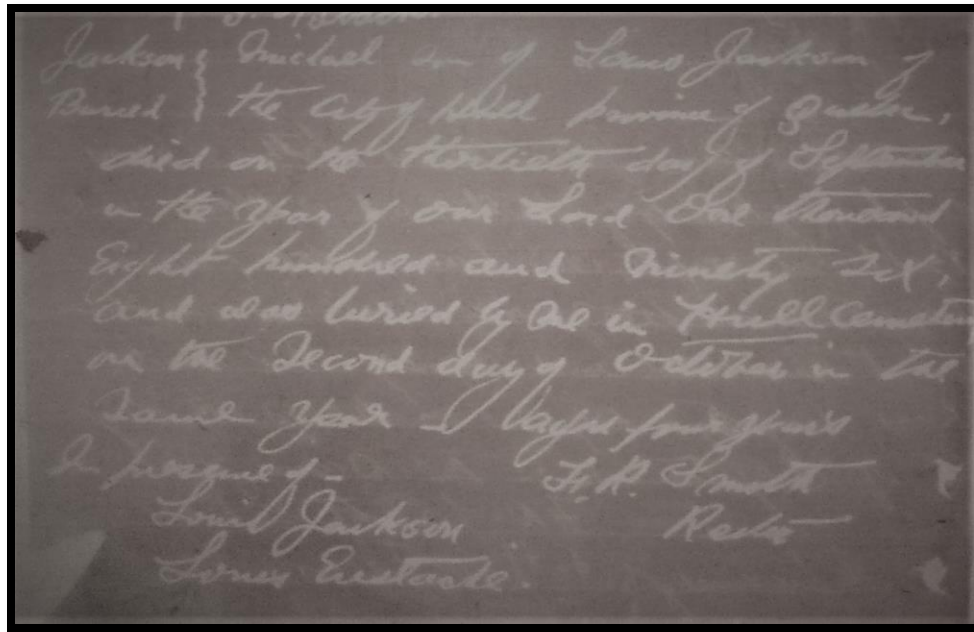 Jackson } Michael son of Louis Jackson of
Buried } the City of Hull province of Quebec,
died on the thirtieth day of September
in the year of our Lord One thousand
Eight hundred and Ninety six,
and was buried by me in Hull Cemetery
on the Second day of October in the
same year
In presence of - F. R. Smith
Louis Jackson Rector
Louis Eustache.